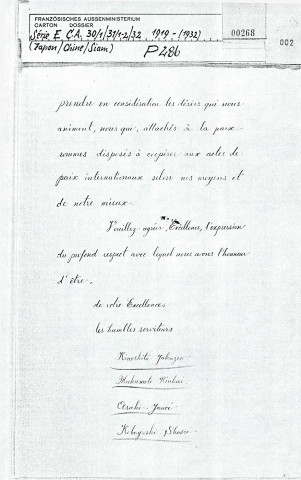 FRANZÖSISCHES AUSSENMINISTERIUM
CARTON DOSSIER
Série E C.A. 30/1/31/1-2/32 1919-(1932)
(Japon/Chine/Siam) P 286
00268
002
prendre en considération les désirs qui nous
animent, nous qui, attachés à la paix
sommes disposés à coopérer aux actes de
paix internationaux selon nos moyens et
de notre mieux.
Veuillez agréer, Excellence, l'expression
du profond respect avec lequel nous avons l'honneur
d'être,
de votre Excellence
les humbles serviteurs
Kinoshita
Asahi
Kobayashi